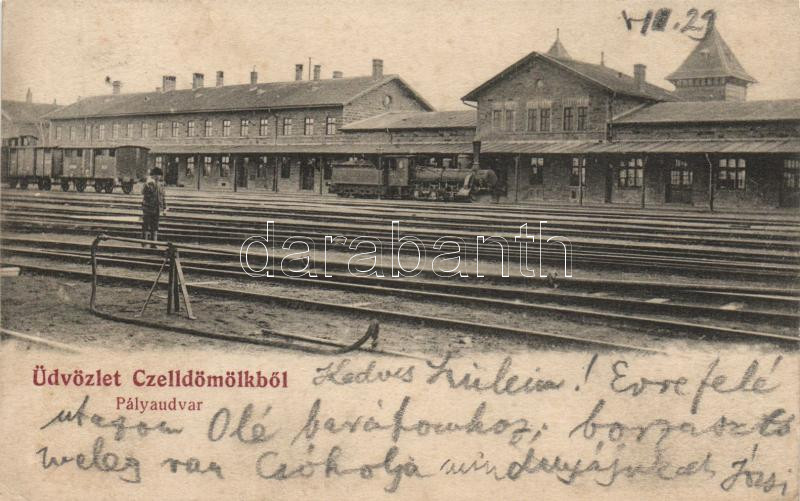 VII. 29
darabanth
Üdvözlet Czelldömölkből
Pályaudvar
Kedves Szüleim! Evrefelé
utazom Olé barátomhoz, borzasztó
meleg van Csókolja mindnyájukat Józsi